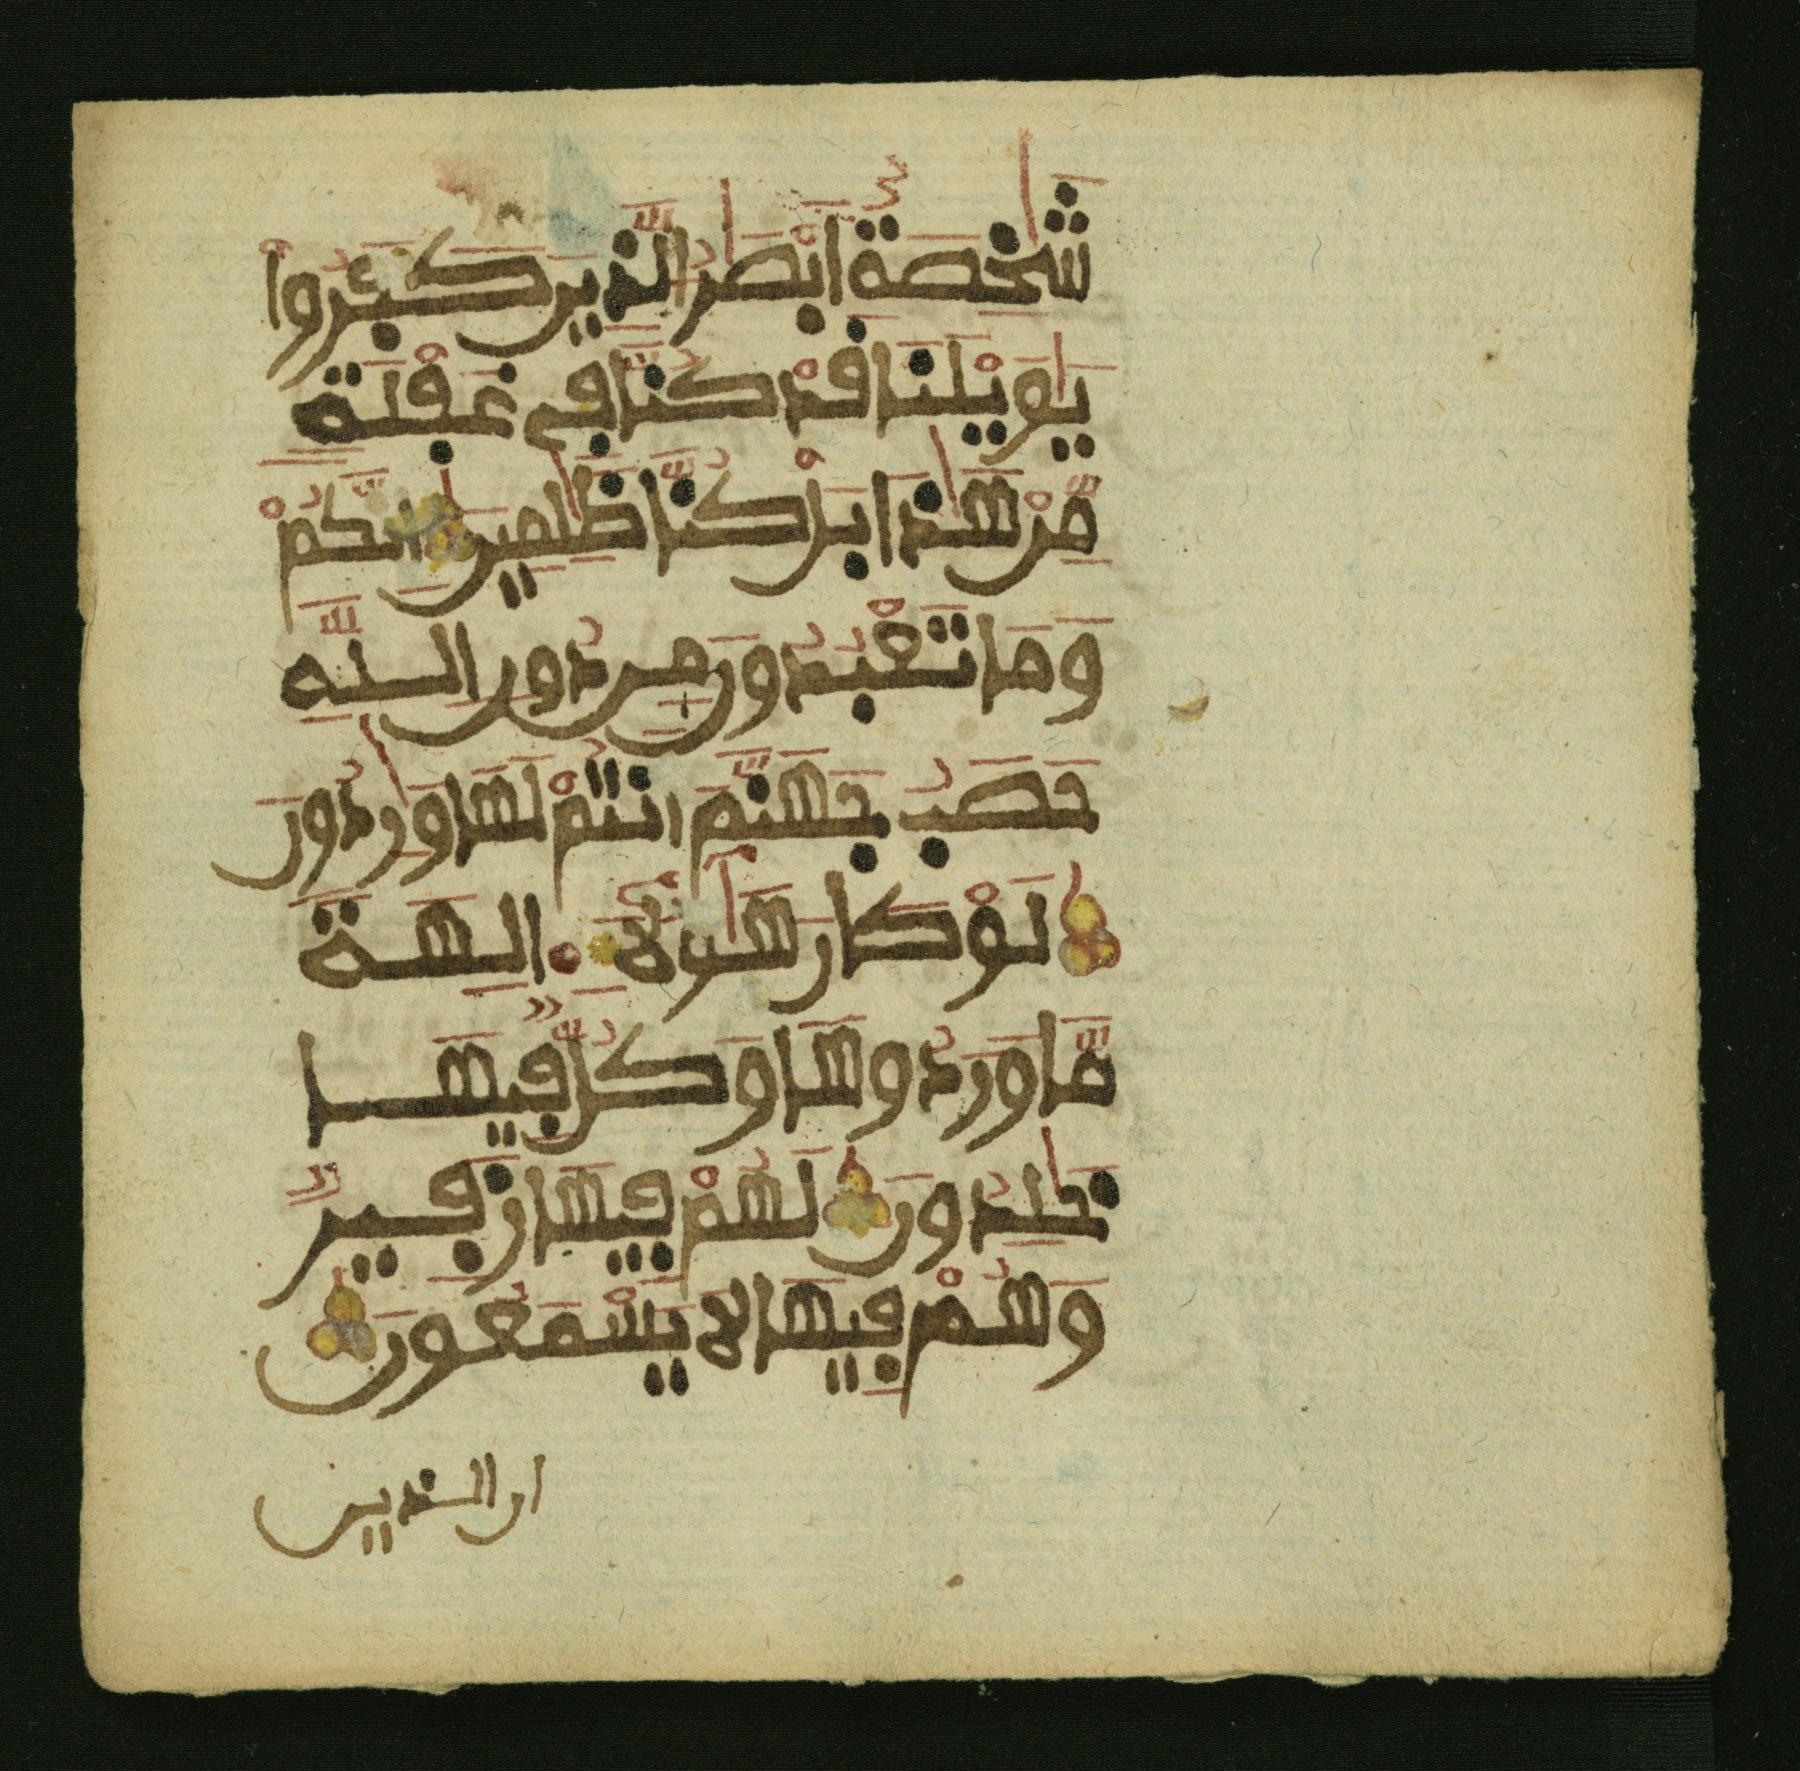 شَٰخِصَةٌ اَبْصَٰرُ الذِينَ كَفَرُواْ
يَٰوَيْلَنَا قَدْ كُنَّا فِي غَفْلَةٍ
مِّنْ هَٰذَا بَلْ كُنَّا ظَٰلِمِينَ انَّكُمْ
وَمَا تَعْبُدُونَ مِن دُونِ اللَّهِ
حَصَبُ جَهَنَّمَ أَنتُمْ لَهَا وَٰرِدُونَ
لَوْ كَانَ هَٰٓؤُلَآءِ الِهَةً
مَّا وَرَدُوهَا وَكُلٌّ فِيهَا
خَٰلِدُونَ لَهُمْ فِيهَا زَفِيرٌ
وَهُمْ فِيهَا لَا يَسْمَعُونَ
ان الذين